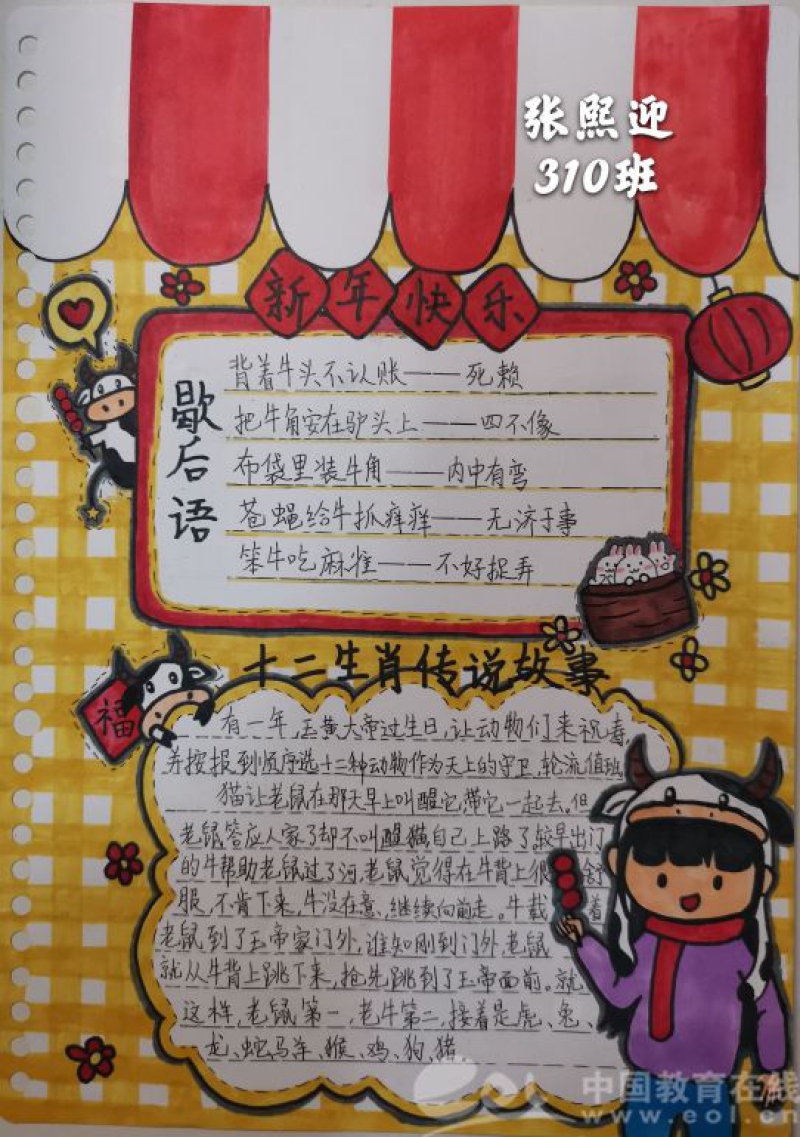 张熙迎
310班
新年快乐
歇后语
背着牛头不认账——死赖
把牛角安在驴头上——四不像
布袋里装牛角——内中有弯
苍蝇给牛抓痒痒——无济于事
笨牛吃麻雀——不好捉弄
十二生肖传说故事
福
有一年,玉黄大帝过生日,让动物们来祝寿,
并按报到顺序选十二种动物作为天上的守卫,轮流值班.
猫让老鼠在那天早上叫醒它,带它一起去,但
老鼠答应人家了却不叫醒猫,自己上路了,较早出门
的牛帮助老鼠过了河,老鼠觉得在牛背上很舒
服,不肯下来,牛没在意,继续向前走。牛载着
老鼠到了玉帝家门外,谁知刚到门外,老鼠
就从牛背上跳下来,抢先跳到了玉帝面前。就
这样,老鼠第一,老牛第二,接着是虎、兔、
龙、蛇、马、羊、猴、鸡、狗、猪
中国教育在线
www.eol.cn